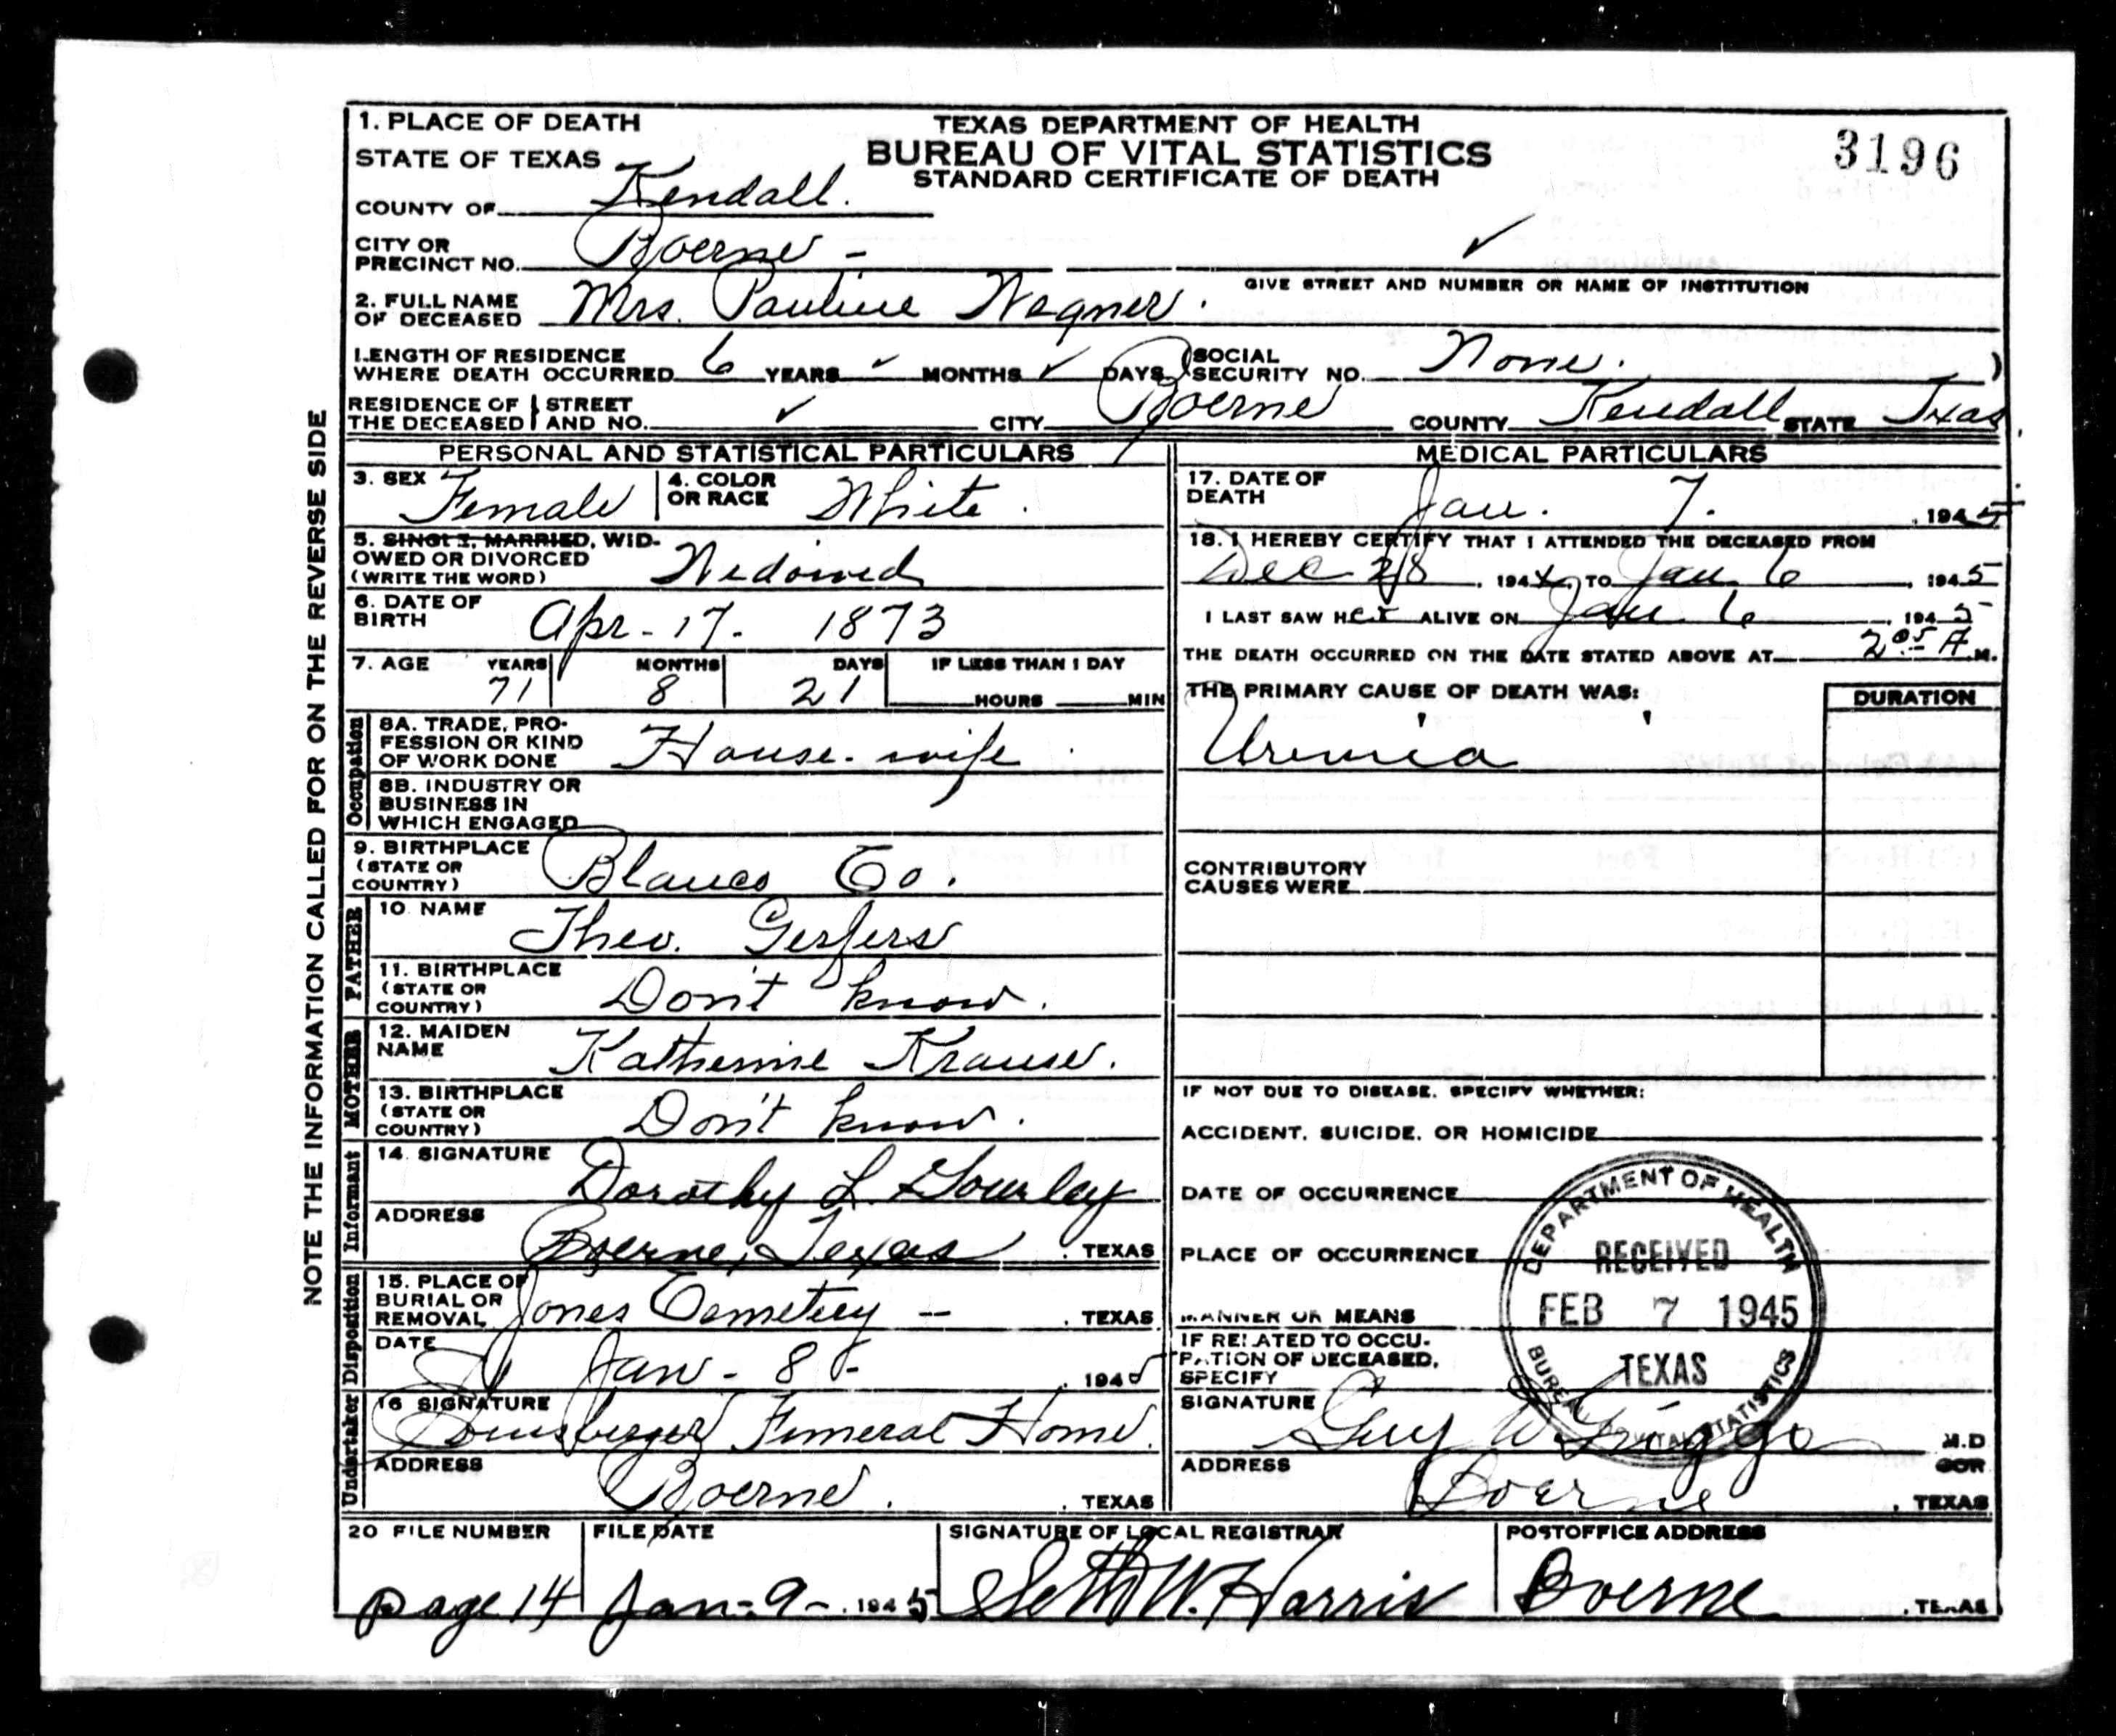 1. PLACE OF DEATH
STATE OF TEXAS
TEXAS DEPARTMENT OF HEALTH
BUREAU OF VITAL STATISTICS
STANDARD CERTIFICATE OF DEATH
3196
COUNTY OF Kendall.
CITY OR PRECINCT NO. Boerne -
GIVE STREET AND NUMBER OR NAME OF INSTITUTION
2. FULL NAME OF DECEASED Mrs. Pauline Wagner.
LENGTH OF RESIDENCE WHERE DEATH OCCURRED 6 YEARS ✓ MONTHS ✓ DAYS (SOCIAL SECURITY NO. None.)
RESIDENCE OF THE DECEASED } STREET AND NO. ✓ CITY Boerne COUNTY Kendall STATE Texas
NOTE THE INFORMATION CALLED FOR ON THE REVERSE SIDE
PERSONAL AND STATISTICAL PARTICULARS
3. SEX Female 4. COLOR OR RACE White.
5. SINGLE, MARRIED, WIDOWED OR DIVORCED (WRITE THE WORD) Widowed
6. DATE OF BIRTH Apr-17. 1873
7. AGE YEARS 71 MONTHS 8 DAYS 21 IF LESS THAN 1 DAY HOURS MIN
Occupation
8A. TRADE, PROFESSION OR KIND OF WORK DONE House-wife
8B. INDUSTRY OR BUSINESS IN WHICH ENGAGED
9. BIRTHPLACE (STATE OR COUNTRY) Blanco Co.
FATHER
10. NAME Theo. Gerfers
11. BIRTHPLACE (STATE OR COUNTRY) Don't know.
MOTHER
12. MAIDEN NAME Katherine Krause.
13. BIRTHPLACE (STATE OR COUNTRY) Don't know.
Informant
14. SIGNATURE Dorothy L. Gourley
ADDRESS Boerne, Texas. TEXAS
Disposition
15. PLACE OF BURIAL OR REMOVAL Jones Cemetery -. TEXAS
DATE Jan-8-. 1945
Undertaker
16 SIGNATURE Funeral Home.
ADDRESS Boerne. . TEXAS
MEDICAL PARTICULARS
17. DATE OF DEATH Jan. 7. , 1945
18. I HEREBY CERTIFY THAT I ATTENDED THE DECEASED FROM
Dec 28, 1944, TO Jan 6, 1945
I LAST SAW HER ALIVE ON Jan 6, 1945
THE DEATH OCCURRED ON THE DATE STATED ABOVE AT 2 05 A.M.
THE PRIMARY CAUSE OF DEATH WAS: DURATION
Uremia
CONTRIBUTORY CAUSES WERE
IF NOT DUE TO DISEASE, SPECIFY WHETHER:
ACCIDENT, SUICIDE, OR HOMICIDE
DATE OF OCCURRENCE
PLACE OF OCCURRENCE
MANNER OR MEANS
IF RELATED TO OCCUPATION OF DECEASED, SPECIFY
DEPARTMENT OF HEALTH
RECEIVED
FEB 7 1945
TEXAS
BUREAU VITAL STATISTICS
SIGNATURE Guy W Griggs M.D
ADDRESS Boerne. TEXAS
20 FILE NUMBER page 14
FILE DATE Jan-9-. 1945
SIGNATURE OF LOCAL REGISTRAR Seth W. Harris
POSTOFFICE ADDRESS Boerne. TEXAS